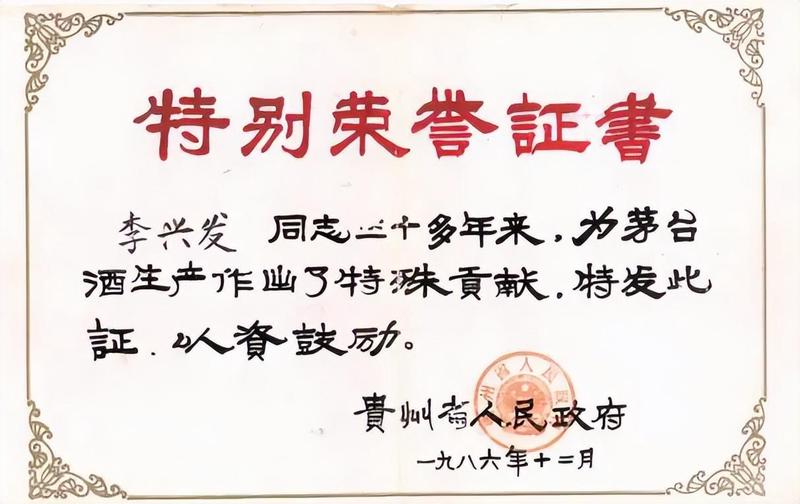 特别荣誉証書
李兴发 同志三十多年来，为茅台
酒生产作出了特殊貢献，特发此
証，以人資鼓励。
貴州省人民政府
一九八六年十二月